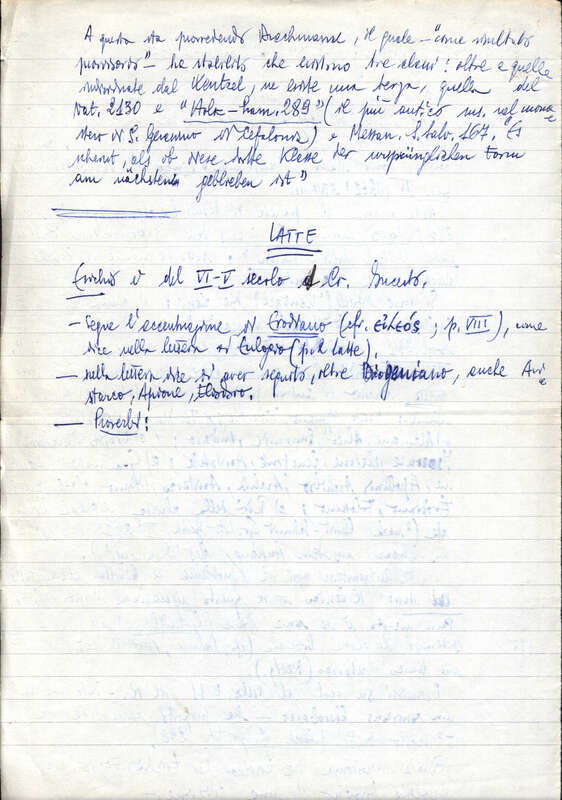 A questo sta provvedendo Drachmann, il quale – "come risultato
provvisorio" – ha stabilito che esistono tre classi: oltre a quelle
subordinate dal ne esiste una terza, quella del
Vat. 2130 e "Holk-ham. 289" (il più antico ms. nel mona-
stero di S. Gerasimo di Cefalonia) e Messan. S. Salv. 167. "Es
scheint, als ob diese dritte Klasse der ursprünglichen Form
am nächsten geblieben ist"
LATTE
Esichio è del VI-V secolo d Cr. Incerto.
– Segue l'accentuazione di Erodiano (cfr. ; p. VIII), come
dice nella lettera ad Eulogio (pr. Latte).
– nella lettera dice di aver seguito, oltre Diogeniano, anche Ari-
starco, Apione, Eliodoro.
– Proverbi: